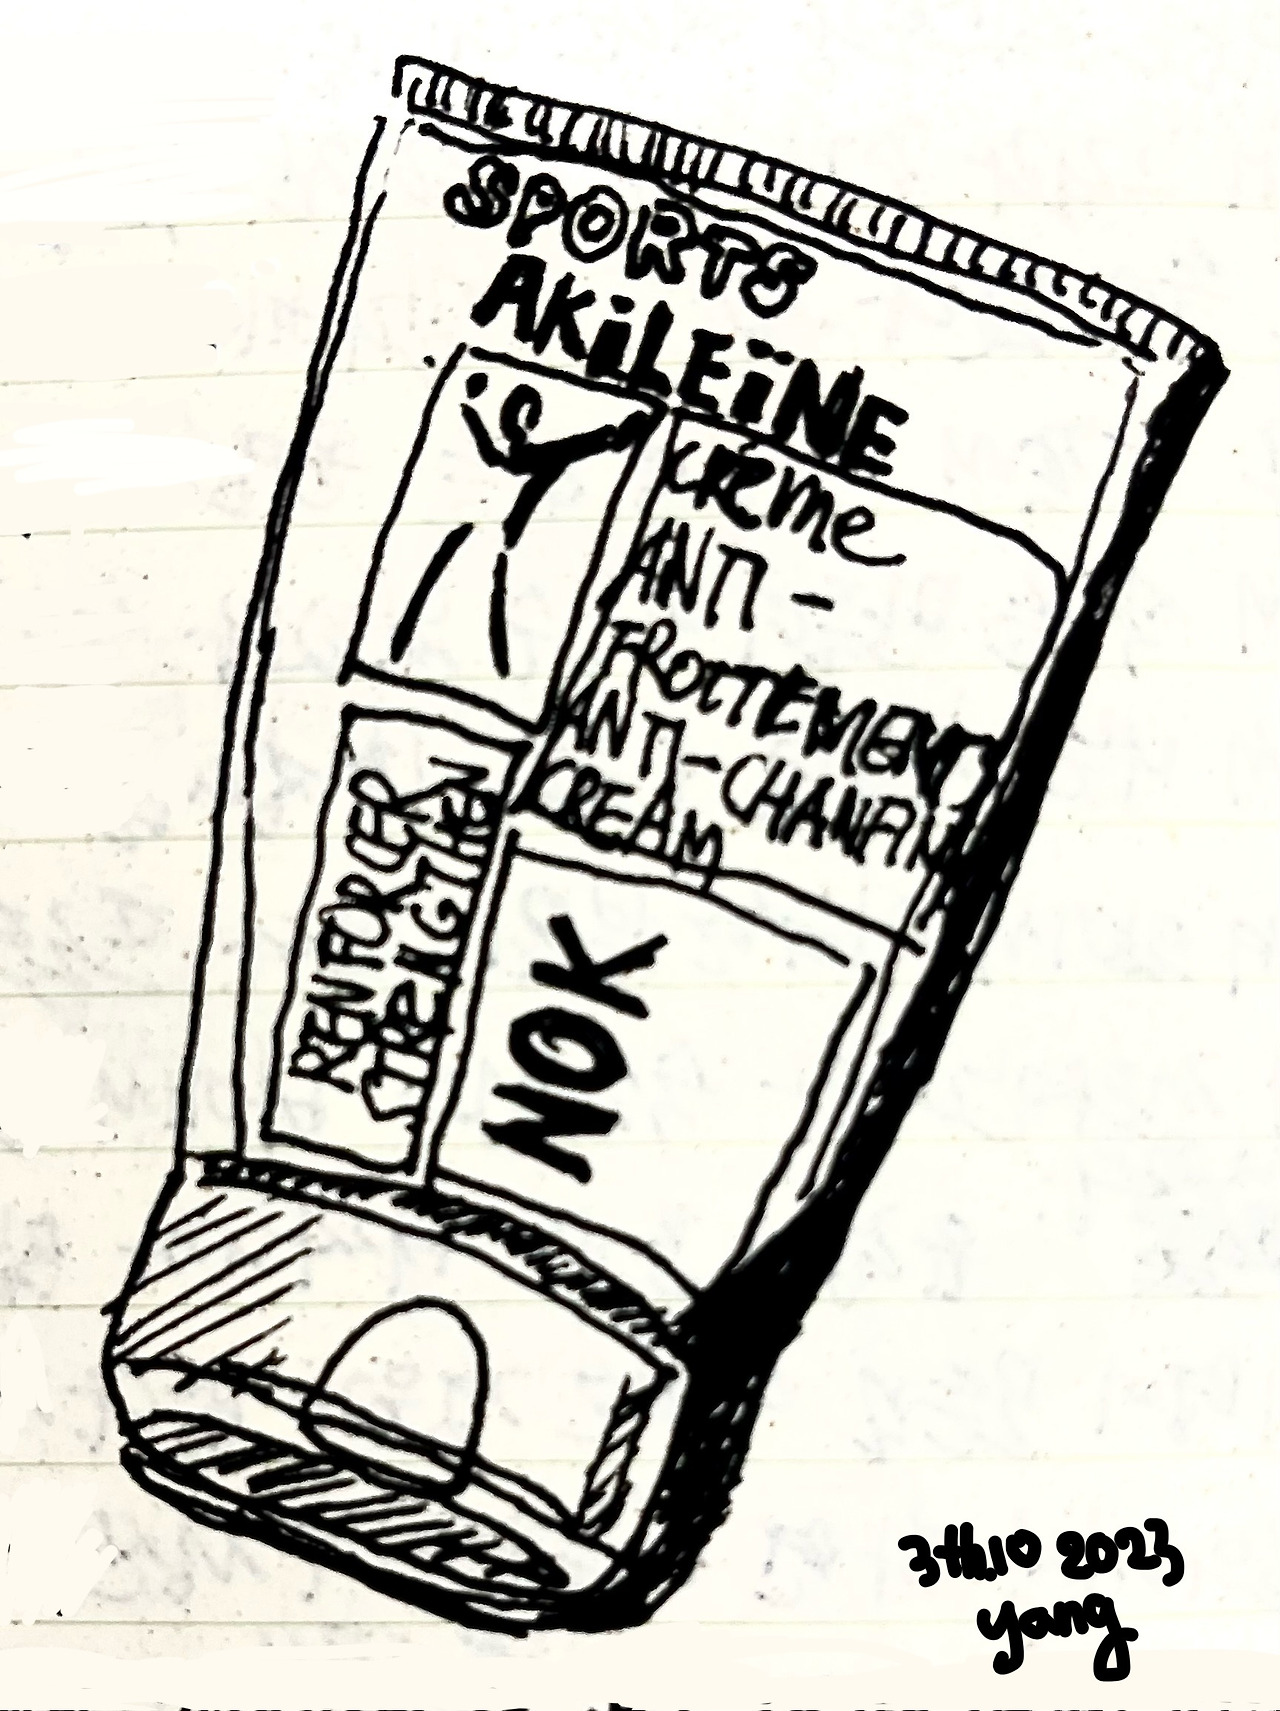 SPORTS
AKiLEiNE
creme
ANTI-
FROTTEMENT
ANTI-CHANFIN
CREAM
RENFORCER
STRENGTHEN
NOK
3th.10 2023
yang